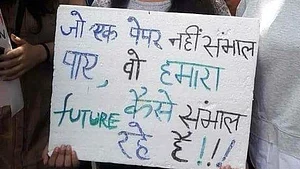 जो एक पेपर नहीं संभाल
पाए, वो हमारा
FUTURE कैसे संभाल
रहे है!!!